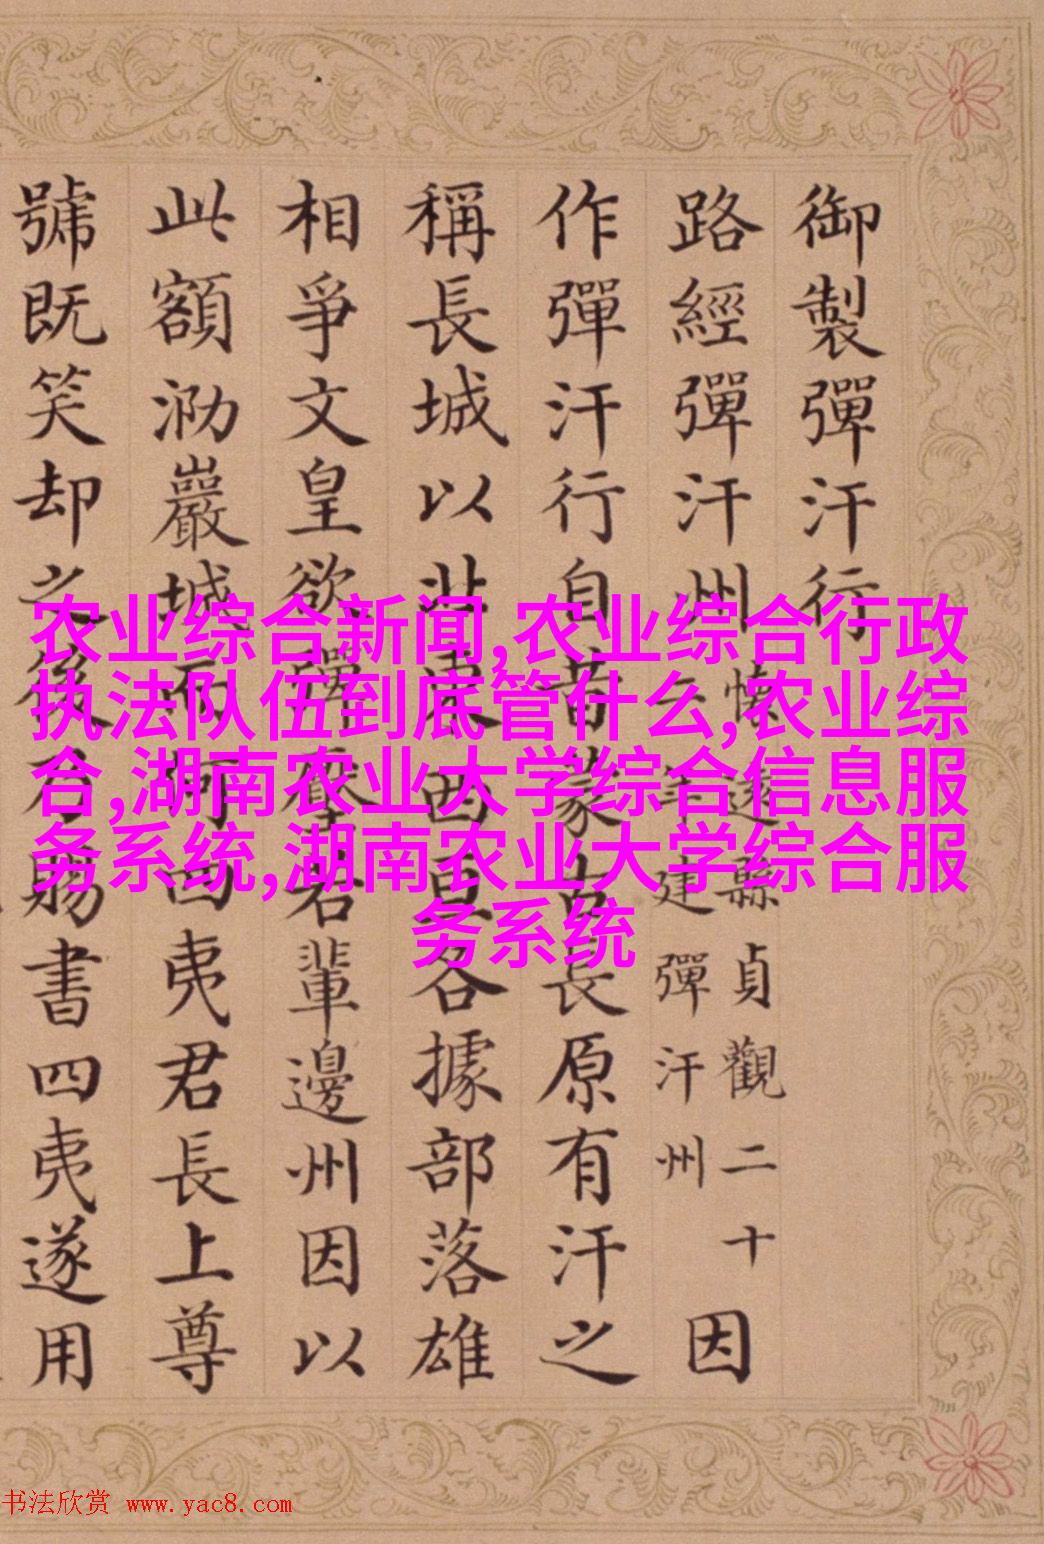 御製彈汗行
路經彈汗州
懷遠縣貞觀二十
年建彈汗州
因
作彈汗行自昔蒙古長原有汗之
稱長城以北東西各據部落雄
相爭文皇欲彈壓若輩邊州因以
此額泐巖城而何四夷君長上尊
號既笑却之後乃賜書四夷遂用
农业综合新闻,农业综合行政
执法队伍到底管什么,农业综
合,湖南农业大学综合信息服
务系统,湖南农业大学综合服
务系统
书法欣赏 www.yac8.com